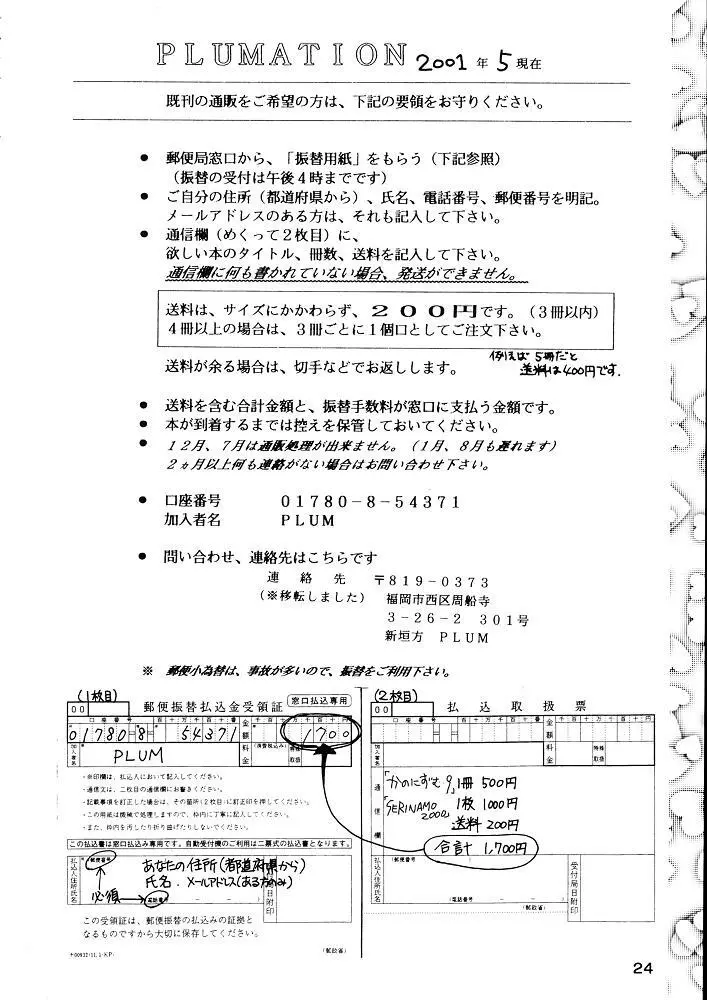 PLUMATION 2001年 5現在
既刊の通販をご希望の方は、下記の要領をお守りください。
● 郵便局窓口から、「振替用紙」をもらう(下記参照)
(振替の受付は午後4時までです)
● ご自分の住所(都道府県から)、氏名、電話番号、郵便番号を明記。
メールアドレスのある方は、それも記入して下さい。
● 通信欄(めくって2枚目)に、
欲しい本のタイトル、冊数、送料を記入して下さい。
通信欄に何も書かれていない場合、発送ができません。
送料は、サイズにかかわらず、200円です。(3冊以内)
4冊以上の場合は、3冊ごとに1個口としてご注文下さい。
送料が余る場合は、切手などでお返しします。
例えば5冊だと
送料は400円です.
● 送料を含む合計金額と、振替手数料が窓口に支払う金額です。
● 本が到着するまでは控えを保管しておいてください。
● 12月、7月は通販処理が出来ません。(1月、8月も遅れます)
2ヵ月以上何も連絡がない場合はお問い合わせ下さい。
● 口座番号 01780-8-54371
加入者名 PLUM
● 問い合わせ、連絡先はこちらです
連絡先 〒819-0373
(※移転しました) 福岡市西区周船寺
3-26-2 301号
新垣方 PLUM
※ 郵便小為替は、事故が多いので、振替をご利用下さい。
(1枚目)
00 郵便振替払込金受領証 窓口払込専用
口座番号 百十万千百十番 金額 千百十万千百十円
01780-8 54371 1700
加入者名 PLUM 料金 (消費税込み) 特殊取扱
・※印欄は、払込人において記入してください。
・通信文は、二枚目の通信欄にお書きください。
・記載事項を訂正した場合は、その箇所(2枚目)に訂正印を押してください。
・この用紙は機械で処理しますので、枠内に丁寧に記入してください。
・また、枠内を汚したり折り曲げたりしないでください。
この払込書は窓口払込み専用です。自動受付機のご利用は二票式の払込書となります。
払込人住所氏名 郵便番号 あなたの住所(都道府県から)
氏名.メールアドレス(ある方のみ)
必須 電話番号
日附印
この受領証は、郵便振替の払込みの証拠と
なるものですから大切に保存してください。
(郵政省)
(2枚目)
00 払込取扱票
口座番号 百十万千百十番 金額 千百十万千百十円
加入者名 料金 特殊取扱
通信欄
「かのにずむ9」1冊 500円
「SERINAMO 2000」1枚 1000円
送料 200円
合計 1,700円
払込人住所氏名 (電話番号 - - )
受付局日附印
(郵政省)
24